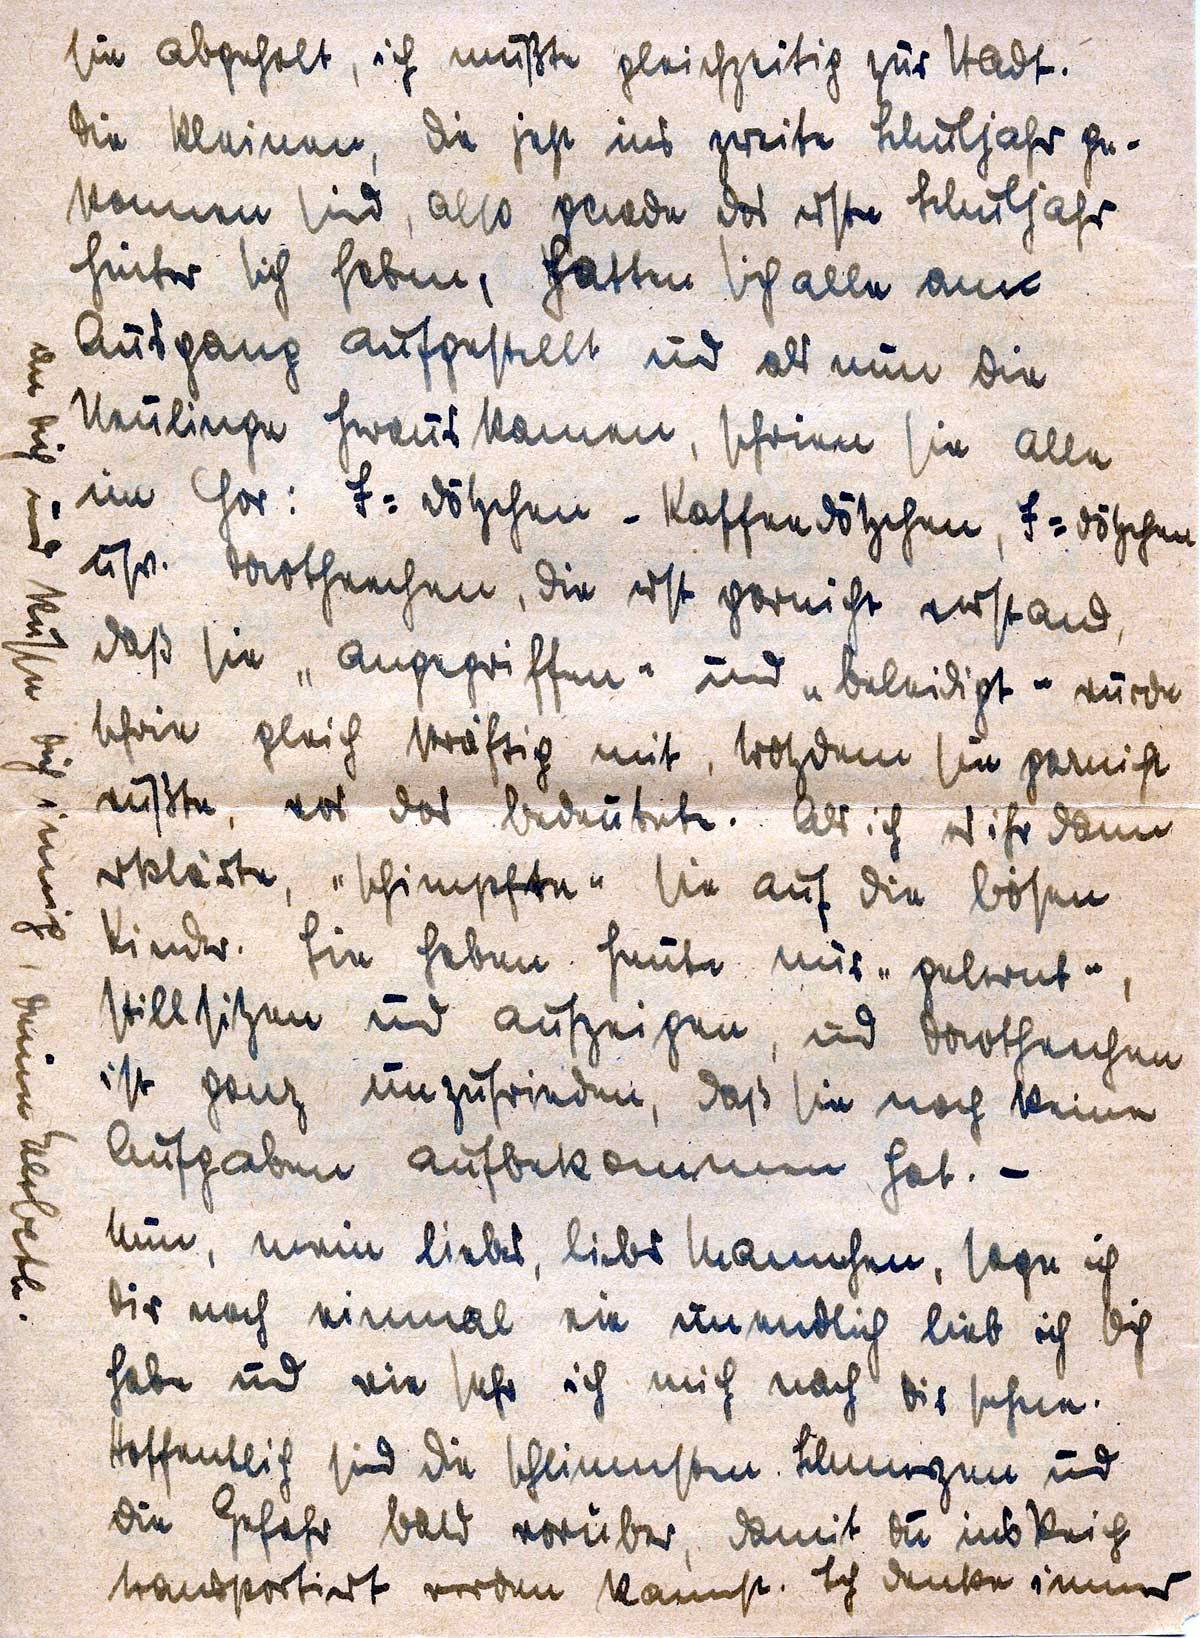 sie abgeholt, ich mußte gleichzeitig zur Stadt.
Die Kleinen, die jetzt ins zweite Schuljahr ge-
kommen sind, also gerade das erste Schuljahr
hinter sich haben, hatten sich alle am
Ausgang aufgestellt und als nun die
Neulinge herauskamen, schrien sie alle
im Chor: I=dötzchen - Kaffeedötzchen, I=dötzchen
usw. Dorotheechen, die erst garnicht verstand,
daß sie „angegriffen" und „beleidigt" wurde
schrie gleich kräftig mit, trotzdem sie garnicht
wußte, was das bedeutete. Als ich es ihr dann
erklärte, „schimpfte" sie auf die bösen
Kinder. Sie haben heute nur „gelernt",
stillsitzen und aufzeigen, und Dorotheechen
ist ganz unzufrieden, daß sie noch keine
Aufgaben aufbekommen hat. –
Nun, mein liebes, liebes Mannchen, sage ich
Dir noch einmal wie unendlich lieb ich Dich
habe und wie sehr ich mich nach Dir sehne.
Hoffentlich sind die schlimmsten Schmerzen und
die Gefahr bald vorüber, damit du ins Reich
transportiert werden kannst. Ich denke immer
an Dich und küsse Dich innig, Deine Elsbeth.